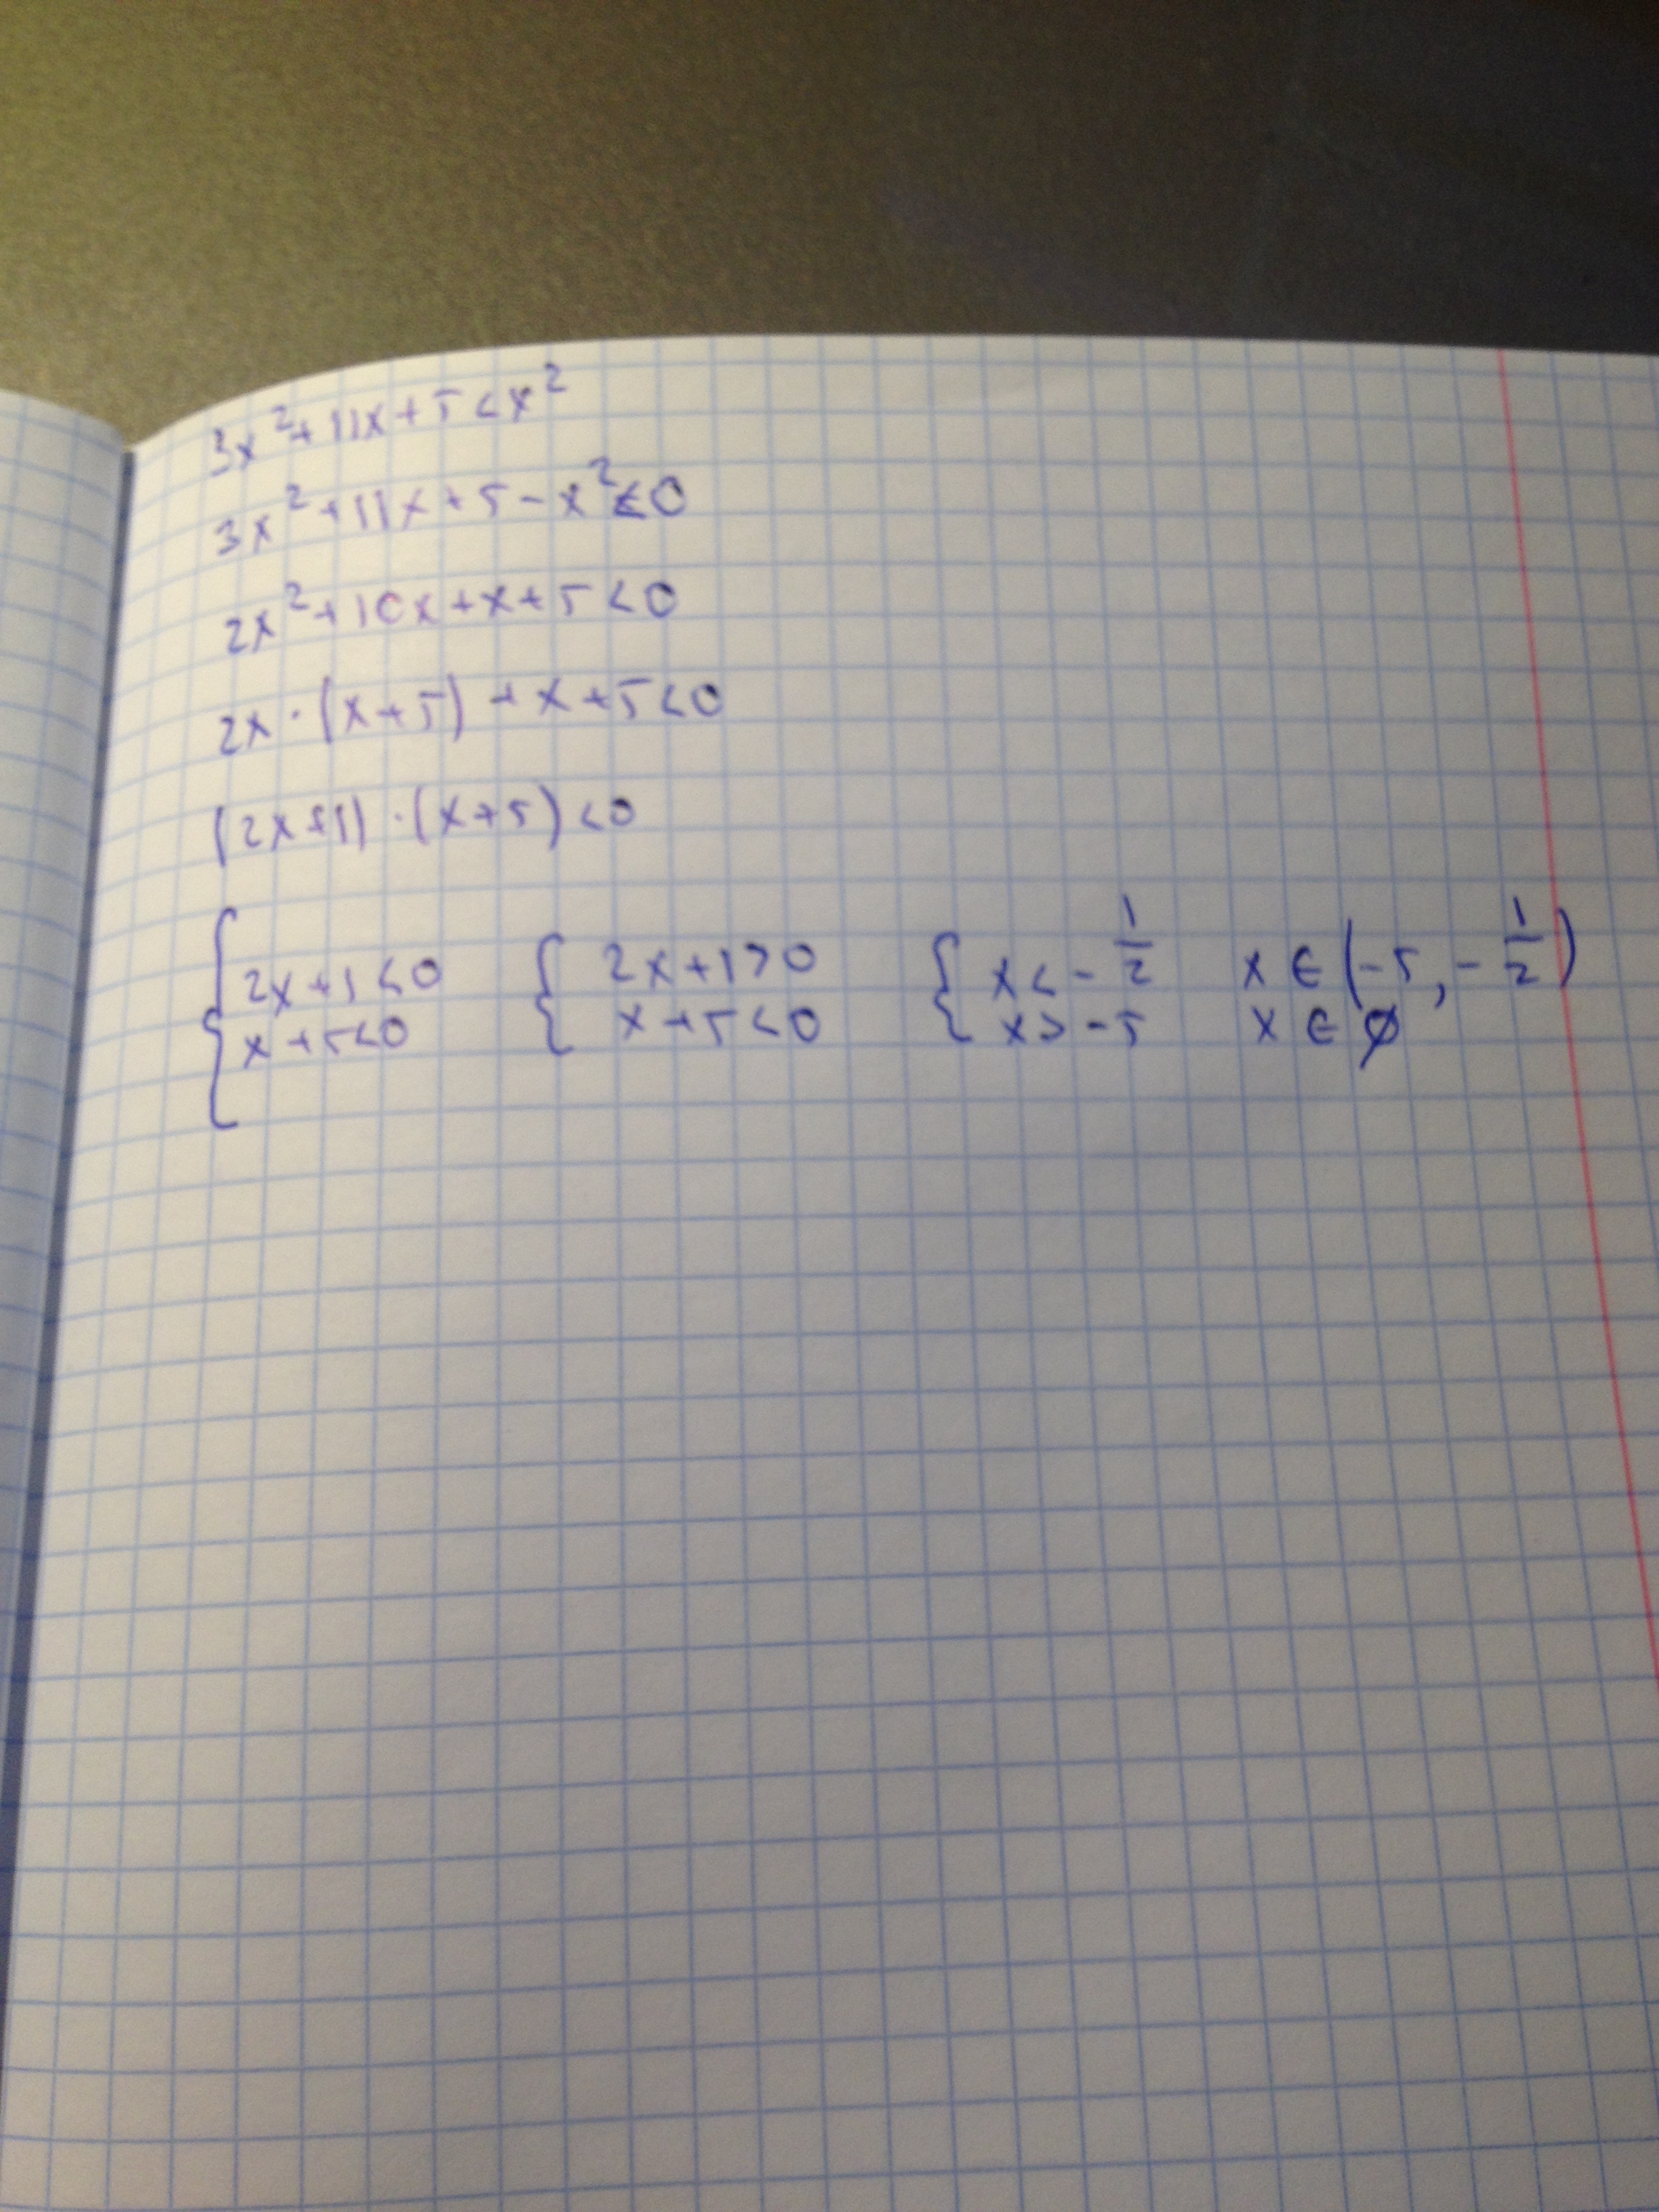 3x² + 11x + 5 < x²
3x² + 11x + 5 - x² < 0
2x² + 10x + x + 5 < 0
2x · (x + 5) + x + 5 < 0
(2x + 1) · (x + 5) < 0
{ 2x + 1 < 0 { 2x + 1 > 0 { x < - 1/2 x ∈ (-5, - 1/2)
x + 5 < 0 x + 5 < 0 x > -5 x ∈ ∅